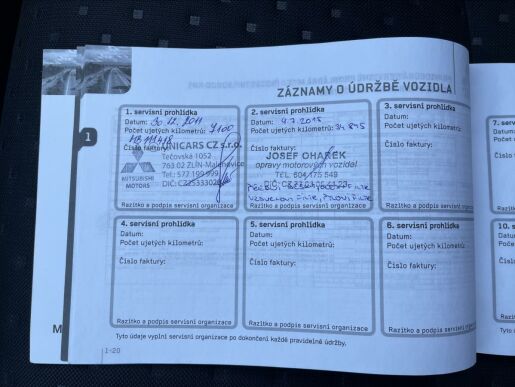 ZÁZNAMY O ÚDRŽBĚ VOZIDLA
1
1. servisní prohlídka
Datum: 30.12.2011
Počet ujetých kilometrů: 7100
Číslo faktury:
UNICARS CZ s.r.o.
Tečovská 1052
763 02 ZLÍN-Malenovice
Tel.: 577 199 999
MITSUBISHI
MOTORS
Razítko a podpis servisní organizace
2. servisní prohlídka
Datum: 9.7.2015
Počet ujetých kilometrů: 34 845
Číslo faktury:
JOSEF OHAREK
opravy motorových vozidel
TEL. 604 175 549
Razítko a podpis servisní organizace
3. servisní prohlídka
Datum:
Počet ujetých kilometrů:
Číslo faktury:
Razítko a podpis servisní organizace
4. servisní prohlídka
Datum:
Počet ujetých kilometrů:
Číslo faktury:
Razítko a podpis servisní organizace
5. servisní prohlídka
Datum:
Počet ujetých kilometrů:
Číslo faktury:
Razítko a podpis servisní organizace
6. servisní prohlídka
Datum:
Počet ujetých kilometrů:
Číslo faktury:
Razítko a podpis servisní organizace
Tyto údaje vyplní servisní organizace po dokončení každé pravidelné údržby.
1-20
M
7.
Datu
Poče
Číslo
Razí
10.
Datu
Poče
Číslo
Razít
Tyto